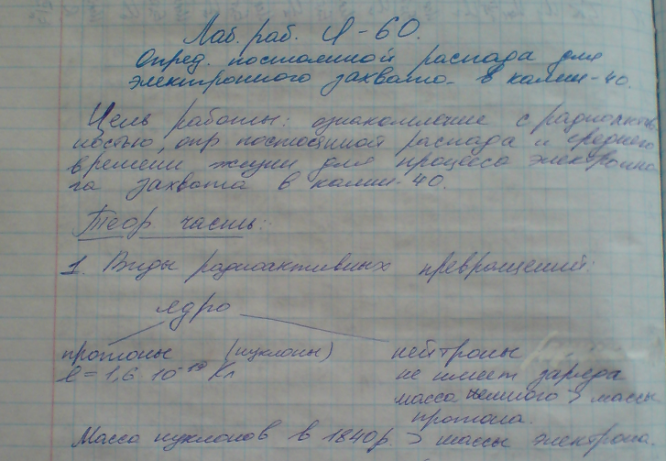 Лаб. раб. Я-60.
Опред. постоянной распада для
электронного захвата в калии-40.
Цель работы: ознакомление с радиоактив
ностью, опр постоянной распада и среднего
времени жизни для процесса электронно
га захвата в калии-40.
Теор часть:
1. Виды радиоактивных превращений:
ядро
протоны (нуклоны) нейтроны
e = 1,6 10⁻¹⁹ Кл не имеет заряда
масса немного > массы
протона.
Масса нуклонов в 1840р > массы электрона.